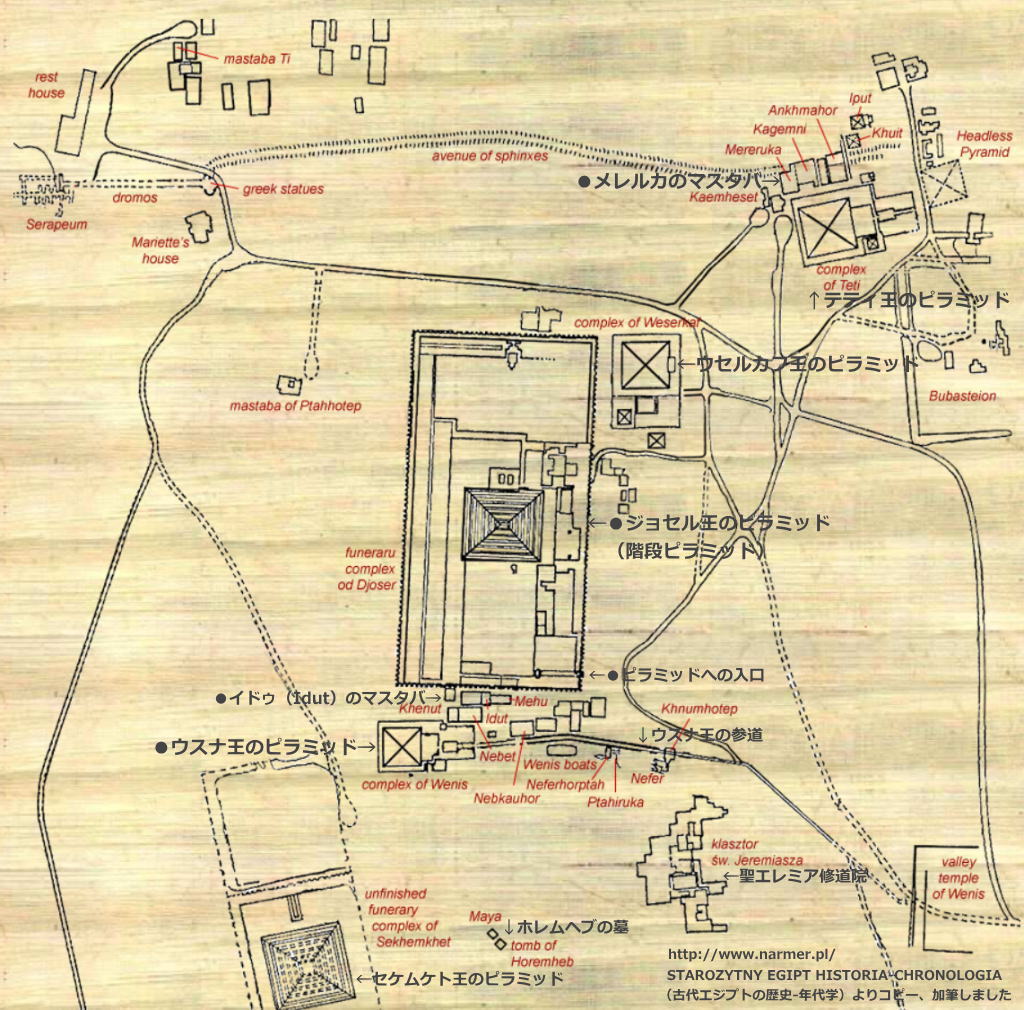 mastaba Ti
rest
house
Iput
Ankhmahor
Kagemni
Khuit
Mereruka
Headless
Pyramid
avenue of sphinxes
●メレルカのマスタバ→
Kaemheset
greek statues
dromos
Serapeum
Mariette's
house
complex
of Teti
↑テティ王のピラミッド
complex of Weserkaf
←ウセルカフ王のピラミッド
mastaba of Ptahhotep
Bubasteion
←●ジョセル王のピラミッド
（階段ピラミッド）
funeraru
complex
od Djoser
←●ピラミッドへの入口
●イドゥ（Idut）のマスタバ→
Khenut
Mehu
Idut
Khnumhotep
↓ウスナ王の参道
●ウスナ王のピラミッド→
Nebet
Wenis boats
complex of Wenis
Neferhorptah
Nefer
Nebkauhor
Ptahiruka
klasztor
św. Jeremiasza
←聖エレミア修道院
valley
temple
of Wenis
unfinished
funerary
complex of
Sekhemkhet
Maya
↓ホレムヘブの墓
tomb of
Horemheb
←セケムケト王のピラミッド
http://www.narmer.pl/
STAROZYTNY EGIPT HISTORIA-CHRONOLOGIA
（古代エジプトの歴史-年代学）よりコピー、加筆しました